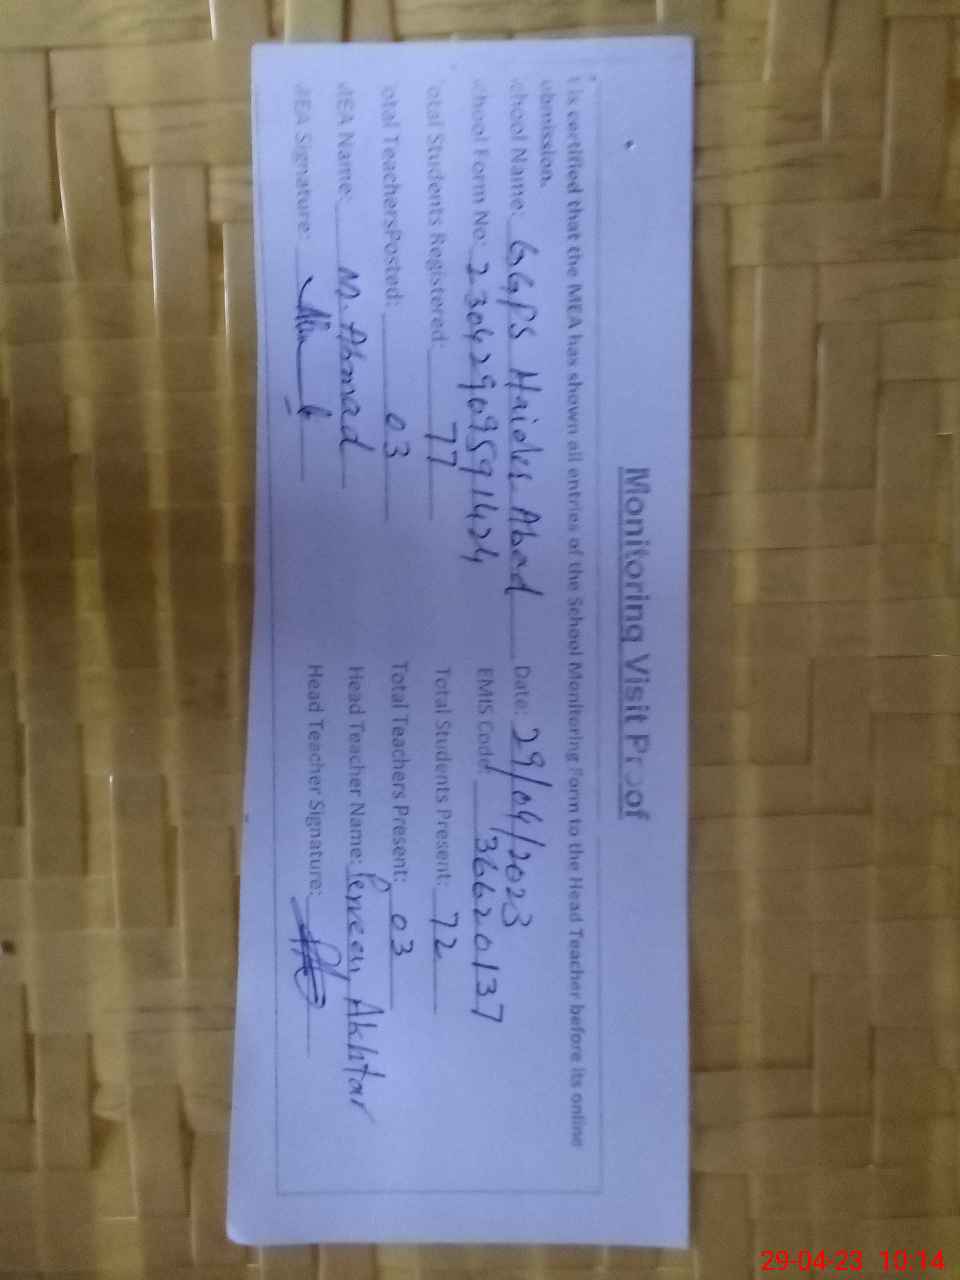 Monitoring Visit Proof
t is certified that the MEA has shown all entries of the School Monitoring Form to the Head Teacher before its online
ubmission.
chool Name: GGPS Haider Abad Date: 29/04/2023
chool Form No: 23042909591424 EMIS Code: 36620137
otal Students Registered: 77 Total Students Present: 72
otal TeachersPosted: 03 Total Teachers Present: 03
MEA Name: M. Ahmad Head Teacher Name: Perveen Akhtar
MEA Signature: Head Teacher Signature:
29-04-23 10:14